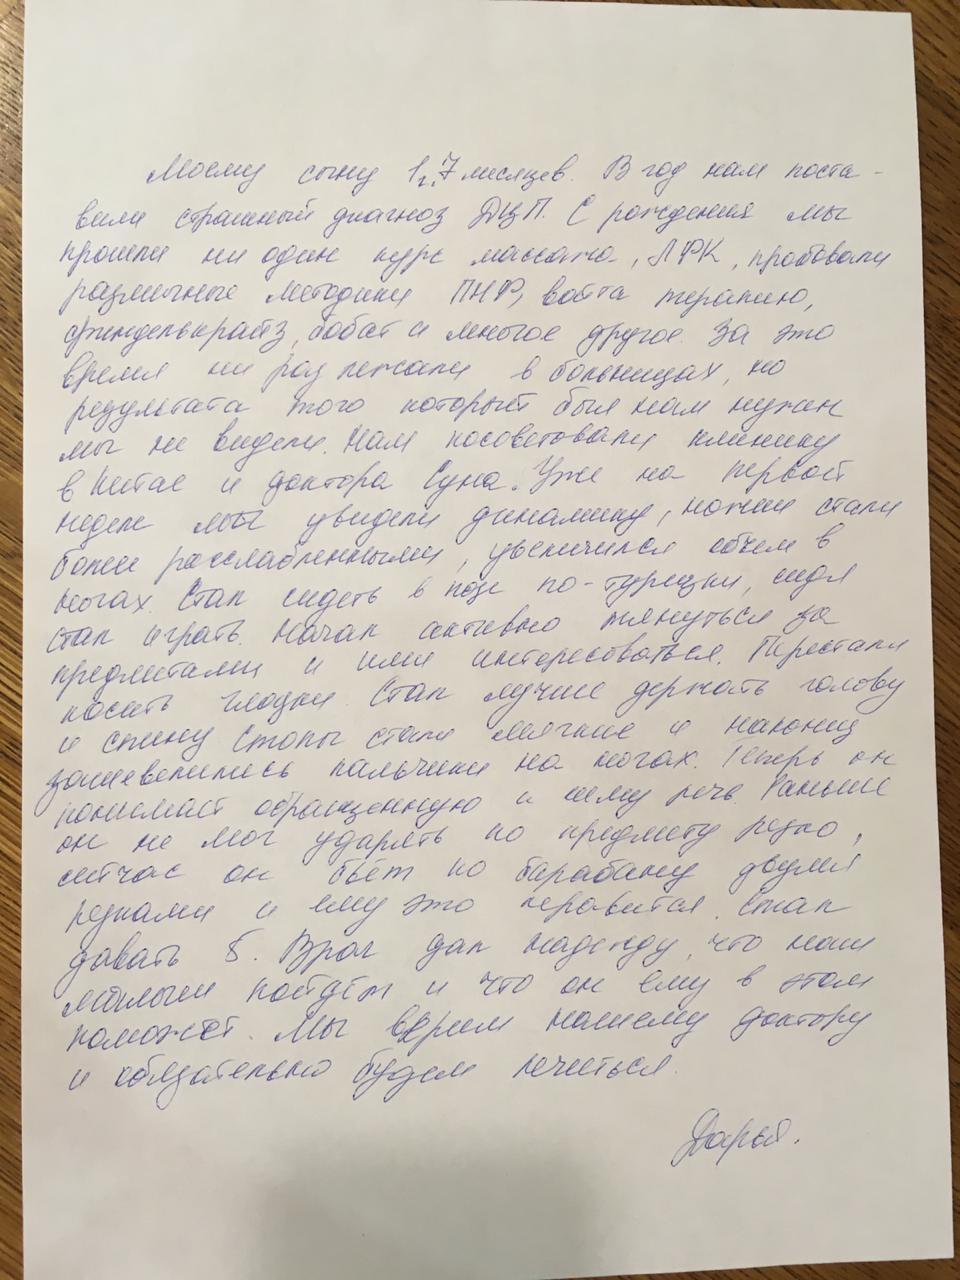 Моему сыну 1г.7 месяцев. В год нам поста-
вили страшный диагноз ДЦП. С рождения мы
прошли ни один курс массажа, ЛФК, пробовали
различные методики ПНФ, войта терапию,
финделькрайз, бобат и многое другое. За это
время ни раз лежали в больницах, но
результата того который был нам нужен
мы не видели. Нам посоветовали клинику
в Китае и доктора Суна. Уже на первой
неделе мы увидели динамику, ножки стали
более расслабленными, увеличился объем в
ногах. Стал сидеть в позе по-турецки, сидя
стал играть. Начал активно тянуться за
предметами и ими интересоваться. Перестали
косить глазки. Стал лучше держать голову
и спину. Стопы стали мягкие и наконец
зашевелились пальчики на ногах. Теперь он
понимает обращенную к нему речь. Раньше
он не мог ударять по предмету резко,
сейчас он бьёт по барабану двумя
руками и ему это нравится. Стал
давать 5. Врач дал надежду, что наш
малыш пойдёт и что он ему в этом
поможет. Мы верим нашему доктору
и обязательно будем лечиться.
Дарья.